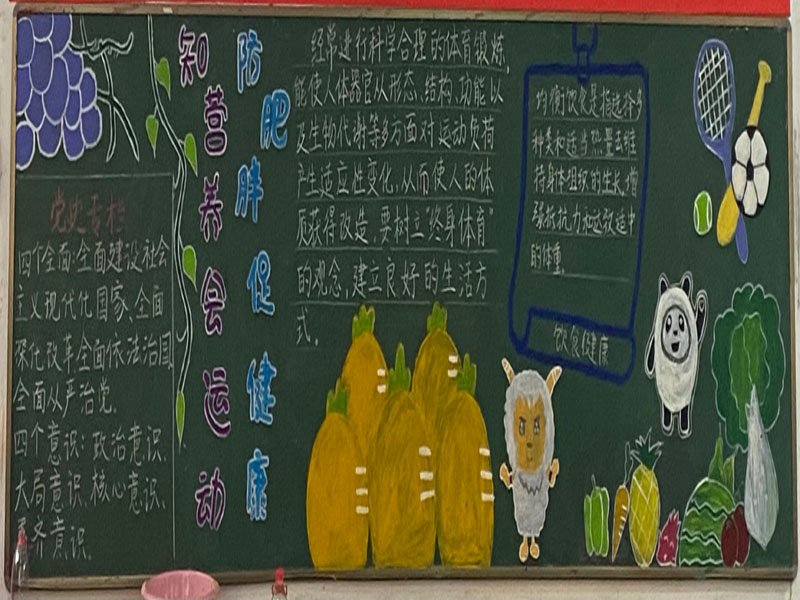 党史专栏
四个全面:全面建设社会
主义现代化国家、全面
深化改革全面依法治国
全面从严治党.
四个意识:政治意识、
大局意识、核心意识、
看齐意识.
知营养会运动
防肥胖促健康
经常进行科学合理的体育锻炼,
能使人体器官从形态、结构、功能以
及生物代谢等多方面对运动负荷
产生适应性变化,从而使人的体
质获得改造,要树立“终身体育”
的观念,建立良好的生活方
式.
均衡饮食是指选择多
种类和适当热量去维
持身体组织的生长,增
强抵抗力和达致适中
的体重.
饮食健康